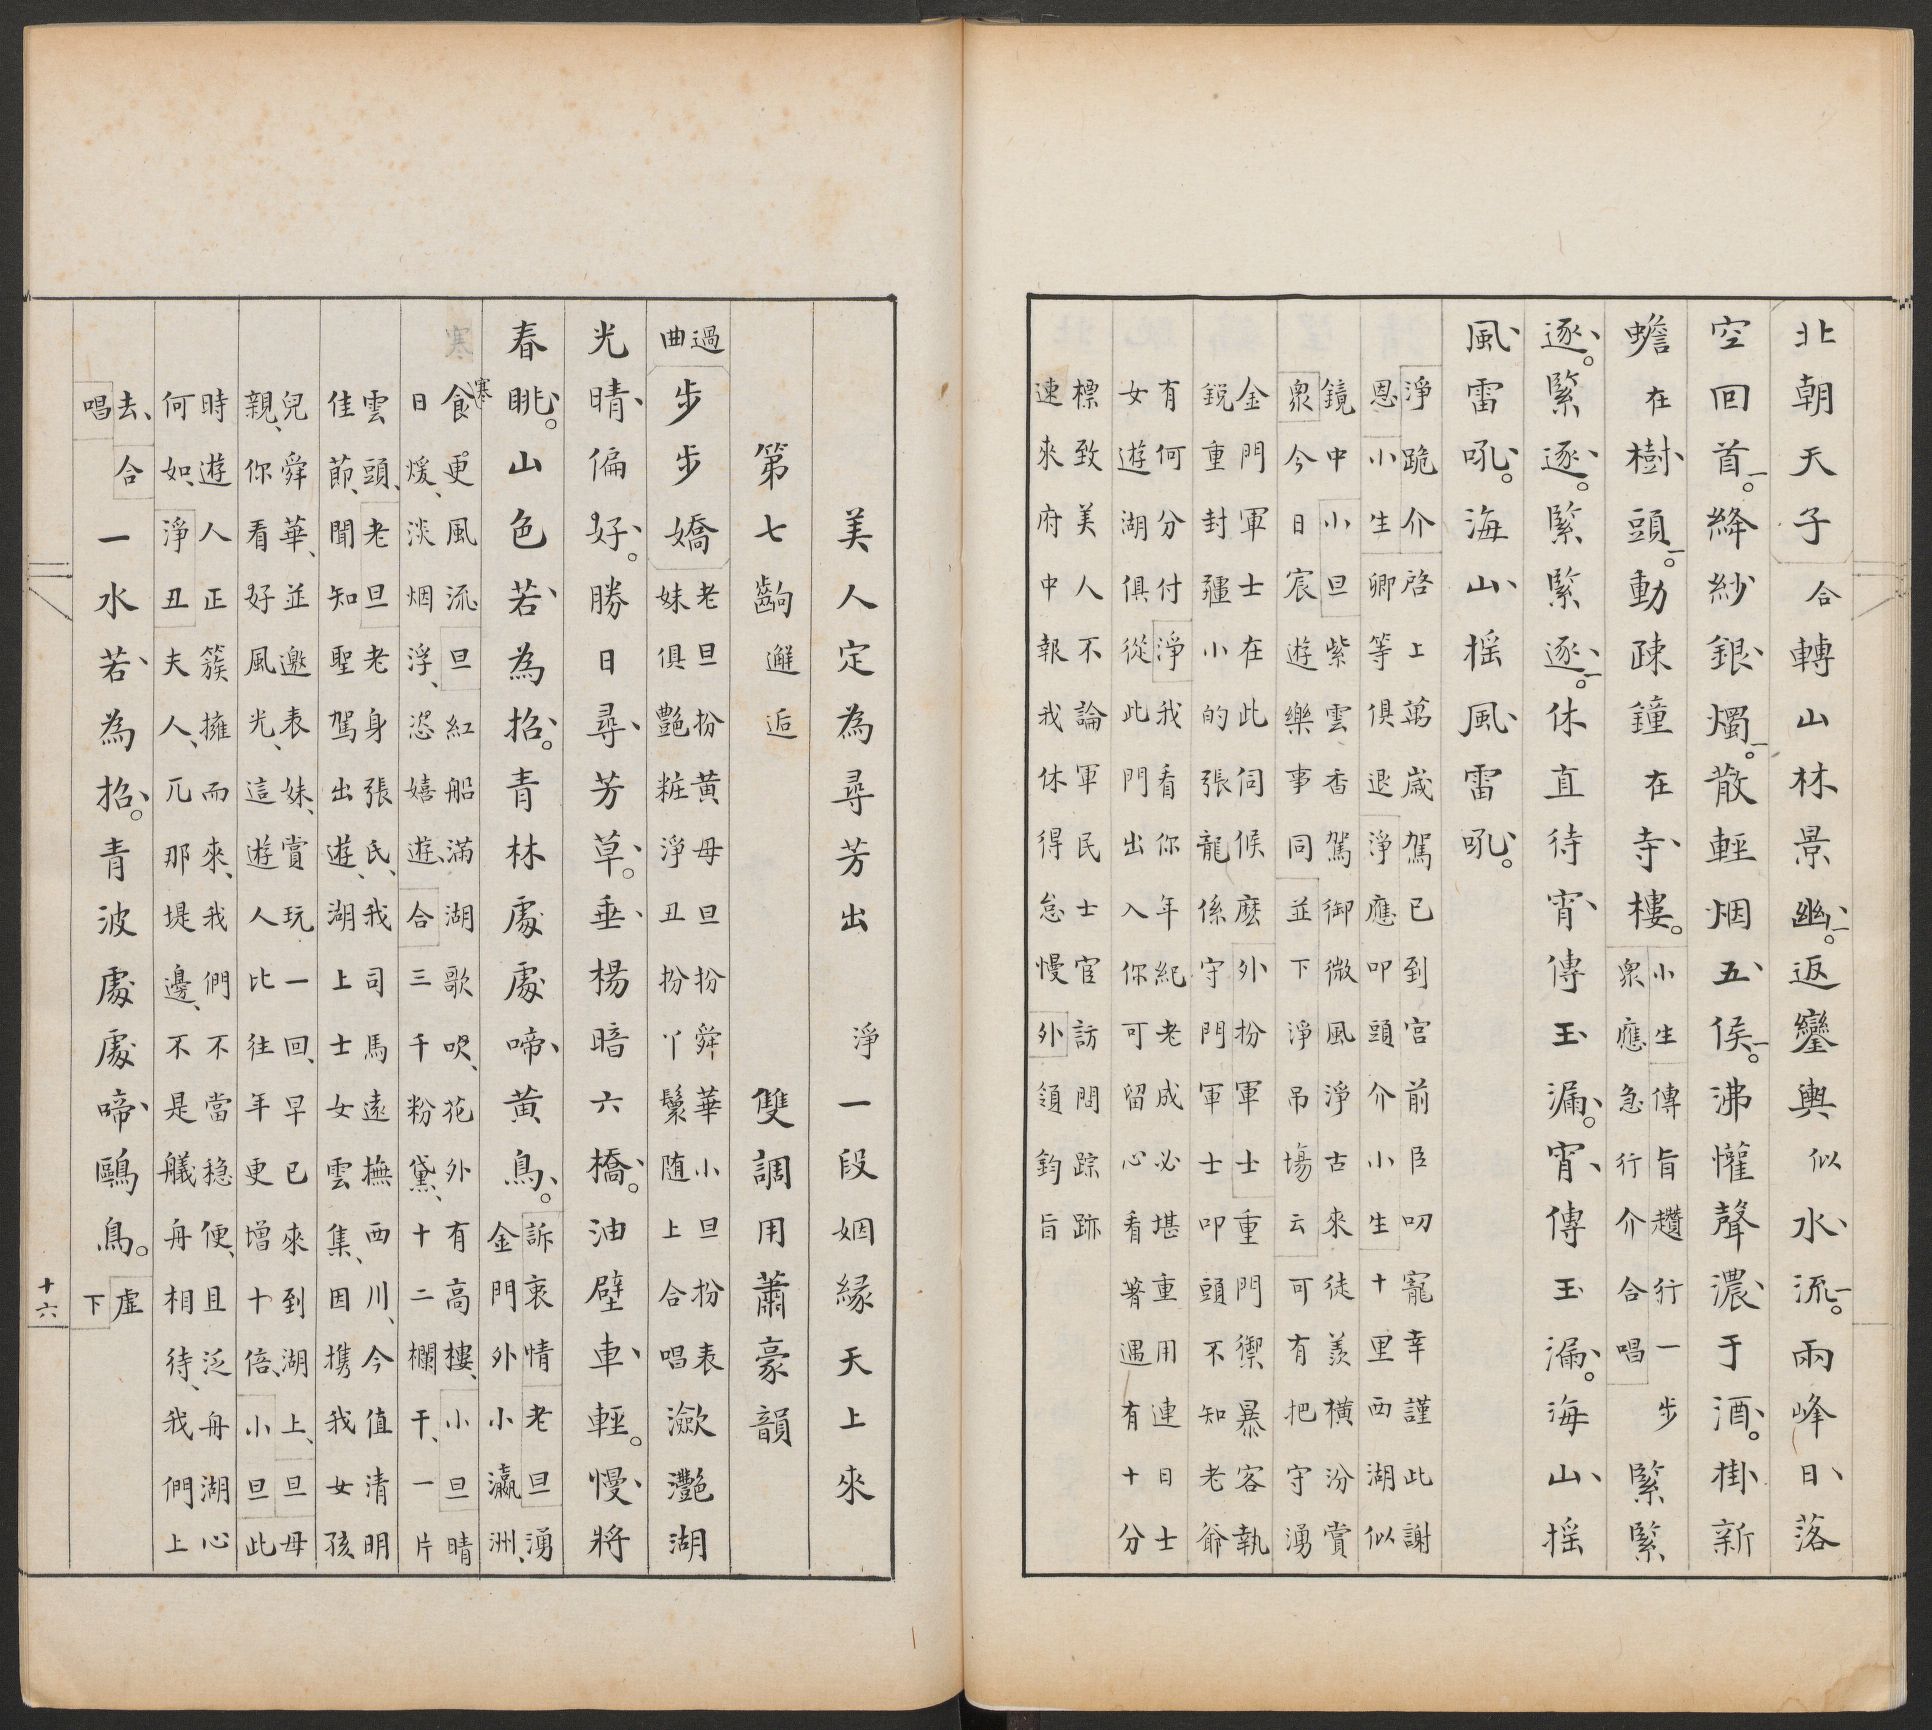 北朝天子合轉山林景幽。返鑾輿似水流。兩峰日落
空回首。絳紗銀燭。散輕烟五侯。沸懽聲濃于酒。掛新
蟾在樹頭。動疎鐘在寺樓。小生傳旨趲行一步眾應急行介合唱緊緊
逐。緊逐。緊緊逐。休直待宵傳玉漏。宵傳玉漏。海山揺
風雷吼。海山揺風雷吼。
淨跪介啓上萬歲駕已到宮前臣叨寵幸謹此謝
恩小生卿等俱退淨應叩頭介小生十里西湖似
鏡中小旦紫雲香駕御微風淨古來徒羨橫汾賞
眾今日宸遊樂事同並下淨吊場云可有把守湧
金門軍士在此伺候麽外扮軍士重門禦暴客執
銳重封疆小的張龍係守門軍士叩頭不知老爺
有何分付淨我看你年紀老成必堪重用連日士
女遊湖俱從此門出入你可留心看著遇有十分
標致美人不論軍民士宦訪問踪跡
速來府中報我休得怠慢外領鈞旨
美人定為尋芳出 淨 一段姻緣天上來
第七齣 邂逅 雙調用蕭豪韻
過曲 步步嬌 老旦扮黄母旦扮舜華小旦扮表妹俱艷粧淨丑扮丫鬟随上合唱 瀲灔湖
光晴、偏好。勝日尋、芳草。垂、楊暗六橋。油壁車、輕。慢、將
春眺。山色若、為招。青林處處啼、黄鳥。訴衷情老旦湧金門外小瀛洲、
寒食更風流旦紅船滿湖歌吹、花外有高樓、小旦晴
日煖、淡烟浮、恣嬉遊、合三千粉黛、十二欄干、一片
雲頭、老旦老身張氏、我司馬遠撫西川、今值清明
佳節、聞知聖駕出遊、湖上士女雲集、因携我女孩
兒舜華、並邀表妹、賞玩一回、早已來到湖上、旦母
親、你看好風光、這遊人比往年更增十倍、小旦此
時遊人正簇擁而來、我們不當穏便、且泛舟湖心
何如、淨丑夫人、兀那堤邊、不是艤舟相待、我們上
去、唱合一水若、為招。青波處處啼、鷗鳥。虛下
十六